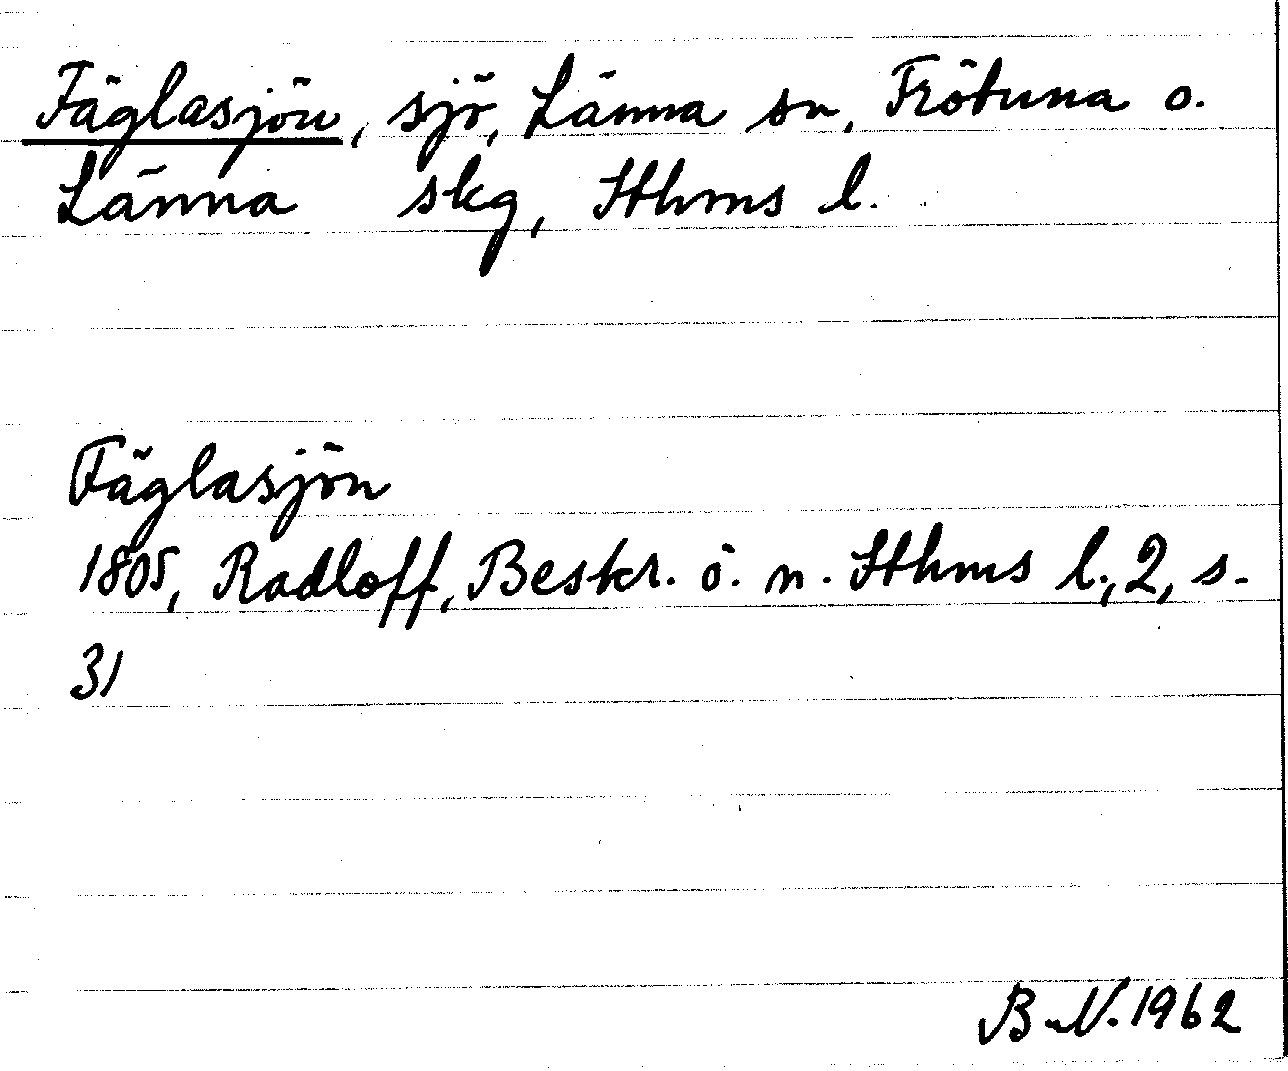 Fäglasjön, sjö, Länna sn, Frötuna o.
Länna skg, Sthms l.
Fäglasjön
1805, Radloff, Beskr. ö. n. Sthms l., 2, s.
31
B.N. 1962